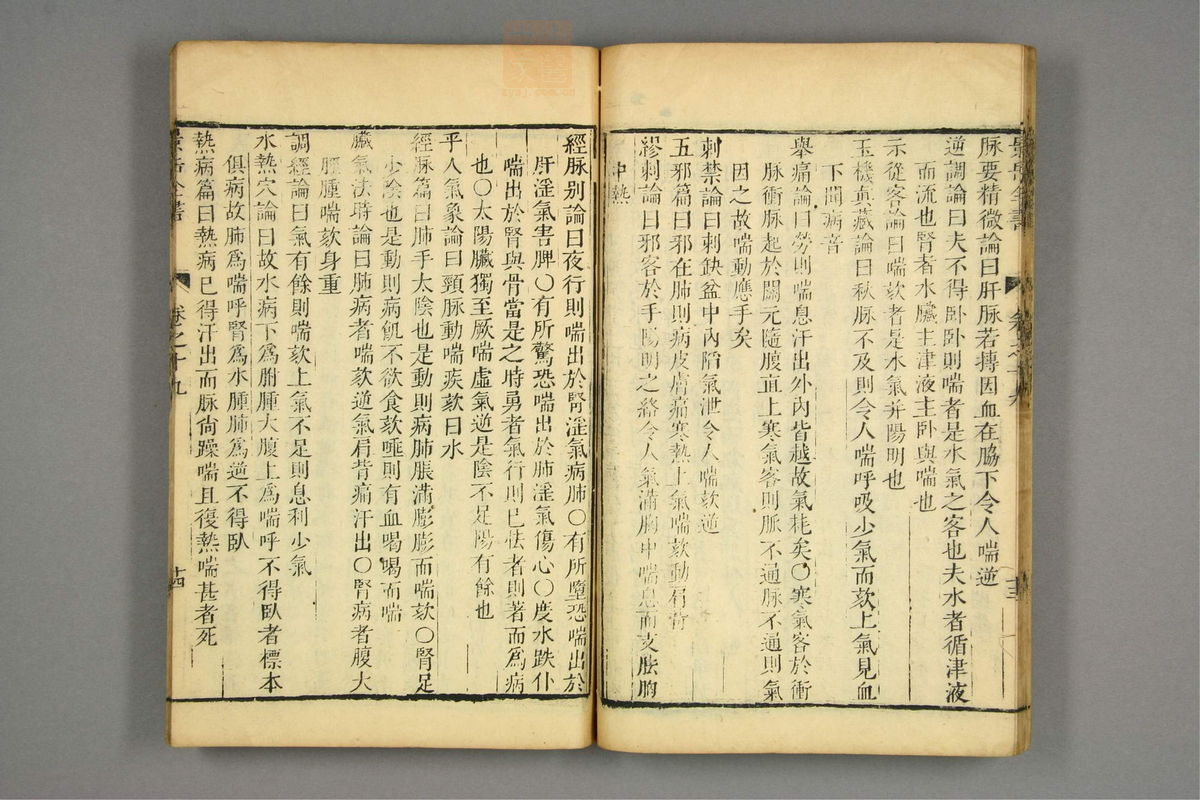 脉要精微論曰肝脉若搏因血在脇下令人喘逆
逆調論曰夫不得卧卧則喘者是水氣之客也夫水者循津液
而流也腎者水臓主津液主卧與喘也
示從容論曰喘欬者是水氣并陽明也
玉機真藏論曰秋脉不及則令人喘呼吸少氣而欬上氣見血
下聞病音
舉痛論曰勞則喘息汗出外内皆越故氣耗矣〇寒氣客於衝
脉衝脉起於關元隨腹直上寒氣客則脈不通脈不通則氣
因之故喘動應手矣
刺禁論曰刺缺盆中内陷氣泄令人喘欬逆
五邪篇曰邪在肺則病皮膚痛寒熱上氣喘欬動肩背
繆刺論曰邪客於手陽明之絡令人氣滿胸中喘息而支胠胸
中熱
經脉别論曰夜行則喘出於腎淫氣病肺〇有所墮恐喘出於
肝淫氣害脾〇有所驚恐喘出於肺淫氣傷心〇度水跌仆
喘出於腎與骨當是之時勇者氣行則已怯者則著而爲病
也〇太陽臟獨至厥喘虛氣逆是陰不足陽有餘也
平人氣象論曰頸脉動喘疾欬曰水
經脉篇曰肺手太陰也是動則病肺脹滿膨膨而喘欬〇腎足
少陰也是動則病飢不欲食欬唾則有血喝喝而喘
臟氣法時論曰肺病者喘欬逆氣肩背痛汗出〇腎病者腹大
脛腫喘欬身重
調經論曰氣有餘則喘欬上氣不足則息利少氣
水熱穴論曰故水病下爲胕腫大腹上爲喘呼不得臥者標本
俱病故肺爲喘呼腎爲水腫肺爲逆不得臥
熱病篇曰熱病已得汗出而脉尚躁喘且復熱喘甚者死
卷之十九
十四